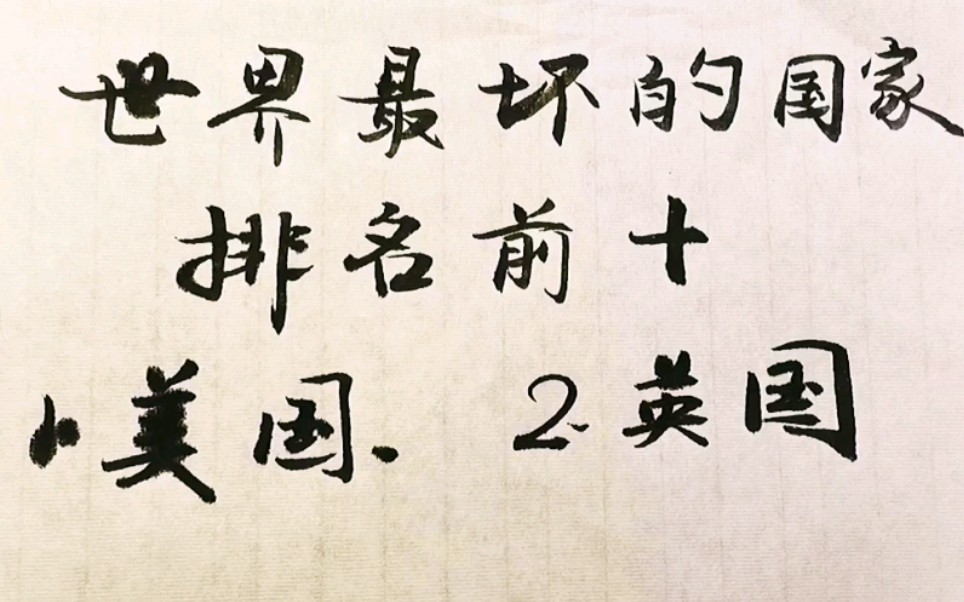 世界最坏的国家
排名前十
1、美国. 2.英国